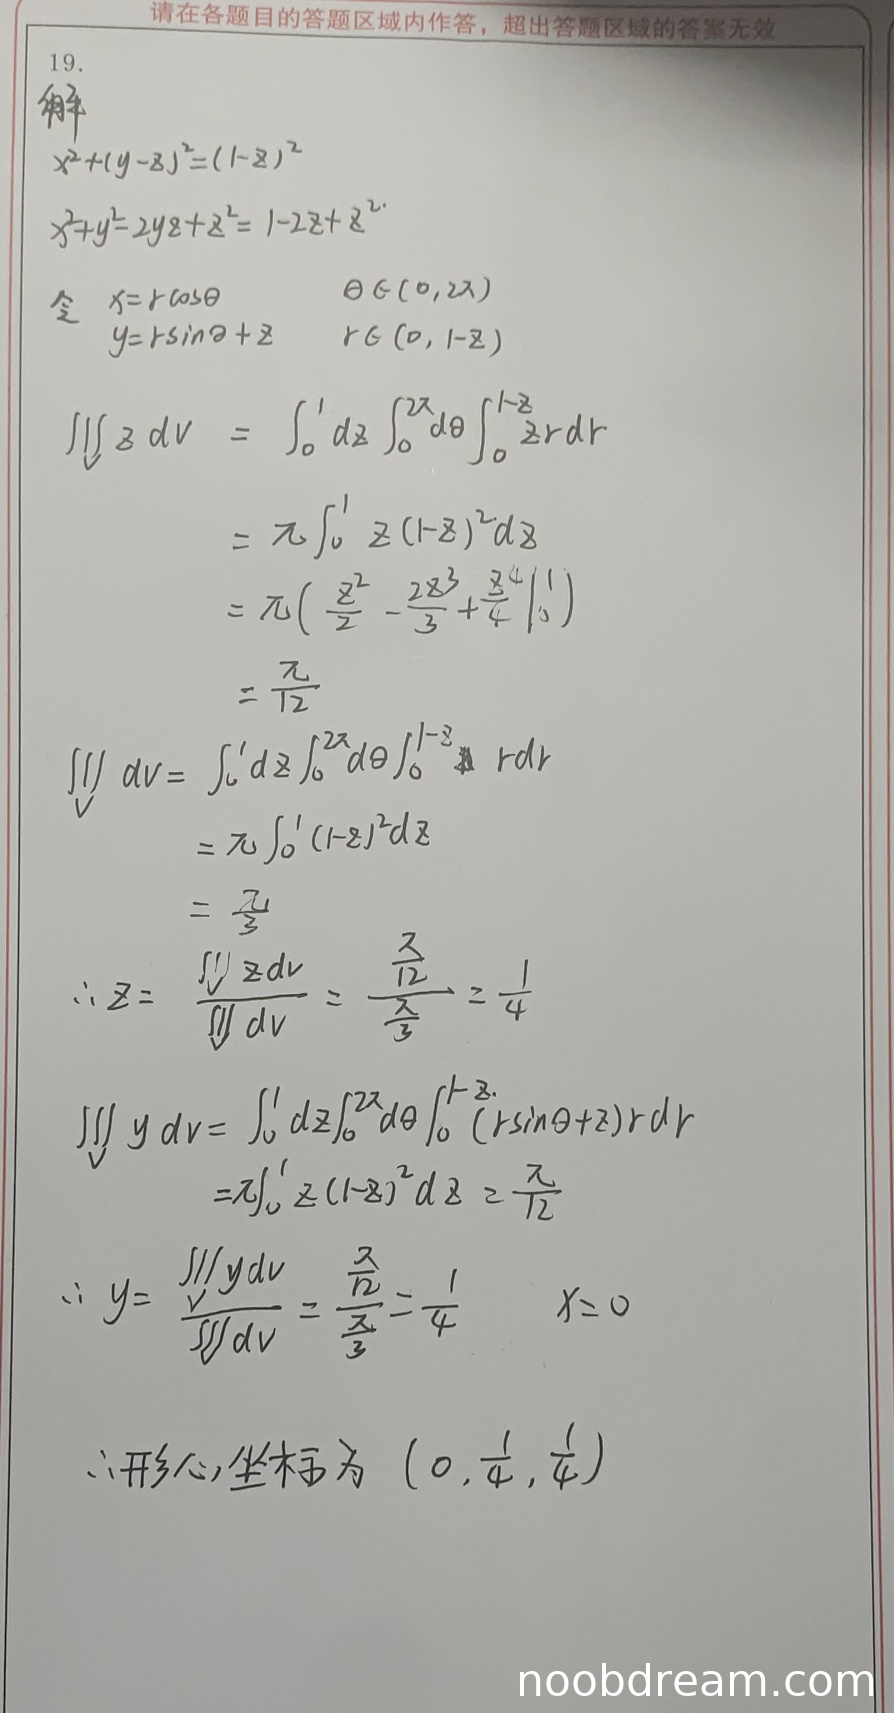 请在各题目的答题区域内作答，超出答题区域的答案无效
19.
解
x²+(y-z)²=(1-z)²
x²+y²-2yz+z²=1-2z+z²
令 x=rcosθ θ∈(0,2π)
y=rsinθ+z r∈(0,1-z)
∭_V z dv = ∫₀¹dz∫₀^{2π}dθ∫₀^{1-z} zrdr
= π∫₀¹ z(1-z)²dz
= π(z²/2 - 2z³/3 + z⁴/4 |₀¹)
= π/12
∭_V dv = ∫₀¹dz∫₀^{2π}dθ∫₀^{1-z} rdr
= π∫₀¹(1-z)²dz
= π/3
∴ z = ∭_V zdv / ∭_V dv = (π/12)/(π/3) = 1/4
∭_V y dv = ∫₀¹dz∫₀^{2π}dθ∫₀^{1-z}(rsinθ+z)rdr
=π∫₀¹ z(1-z)²dz = π/12
∴ y = ∭_V ydv / ∭_V dv = (π/12)/(π/3) = 1/4 x=0
∴形心坐标为 (0, 1/4, 1/4)
noobdream.com